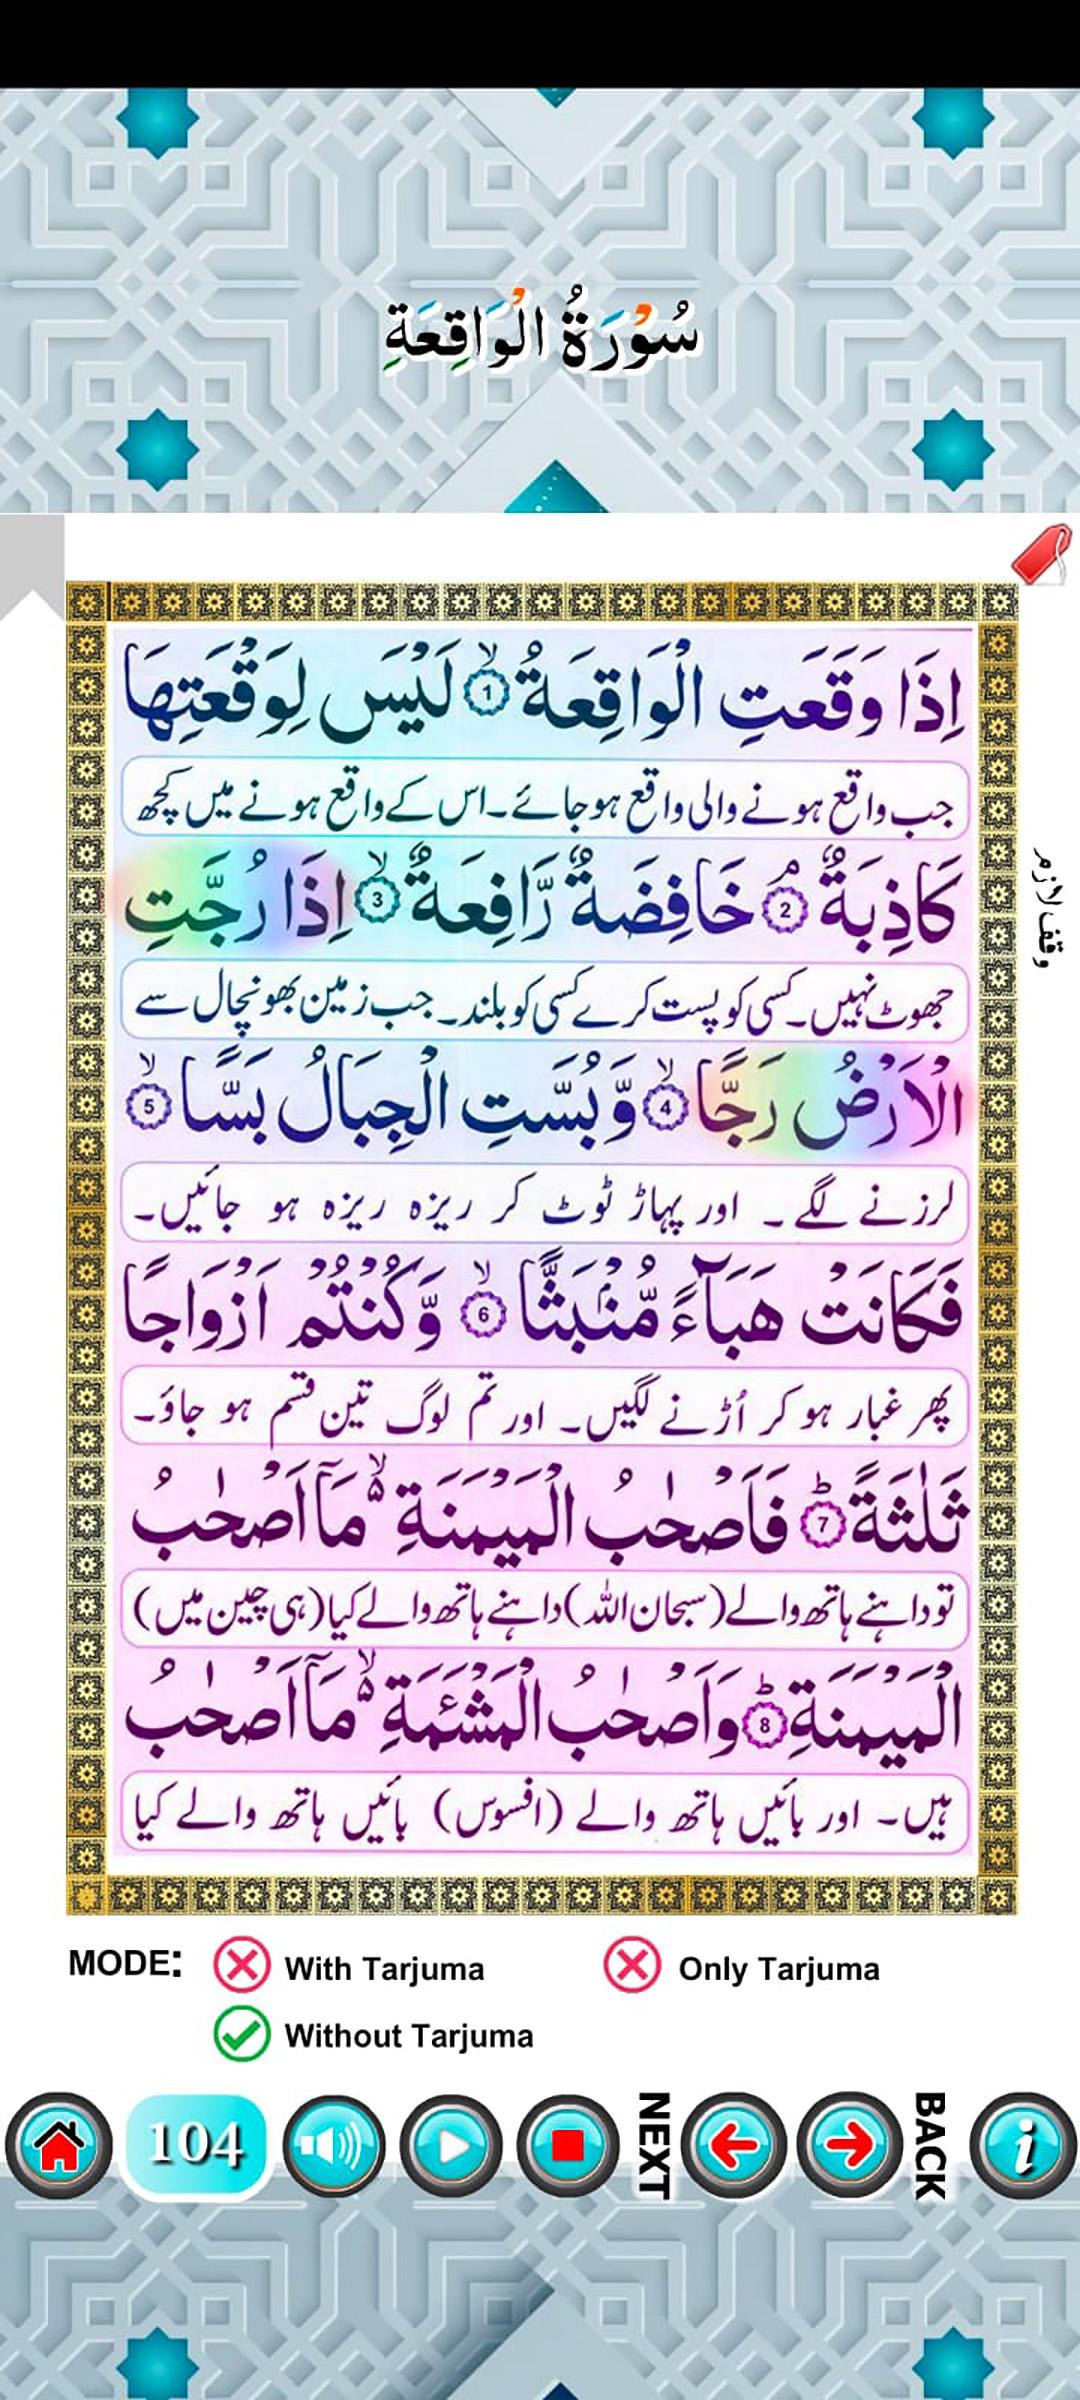 سُوْرَةُ الْوَاقِعَةِ
اِذَا وَقَعَتِ الْوَاقِعَةُ ۙ1 لَيْسَ لِوَقْعَتِهَا
جب واقع ہونے والی واقع ہو جائے۔ اس کے واقع ہونے میں کچھ
كَاذِبَةٌ ۘ2 خَافِضَةٌ رَّافِعَةٌ ۙ3 اِذَا رُجَّتِ
وقف لازم
جھوٹ نہیں۔ کسی کو پست کرے کسی کو بلند۔ جب زمین بھونچال سے
الْاَرْضُ رَجًّا ۙ4 وَّبُسَّتِ الْجِبَالُ بَسًّا ۙ5
لرزنے لگے۔ اور پہاڑ ٹوٹ کر ریزہ ریزہ ہو جائیں۔
فَكَانَتْ هَبَآءً مُّنْۢبَثًّا ۙ6 وَّكُنْتُمْ اَزْوَاجًا
پھر غبار ہو کر اُڑنے لگیں۔ اور تم لوگ تین قسم ہو جاؤ۔
ثَلٰثَةً ؕ7 فَاَصْحٰبُ الْمَيْمَنَةِ ۙ۬ مَاۤ اَصْحٰبُ
تو داہنے ہاتھ والے (سبحان اللہ) داہنے ہاتھ والے کیا (ہی چین میں)
الْمَيْمَنَةِ ؕ8 وَاَصْحٰبُ الْمَشْئَمَةِ ۙ۬ مَاۤ اَصْحٰبُ
ہیں۔ اور بائیں ہاتھ والے (افسوس) بائیں ہاتھ والے کیا
MODE: With Tarjuma Only Tarjuma
Without Tarjuma
104 NEXT BACK i